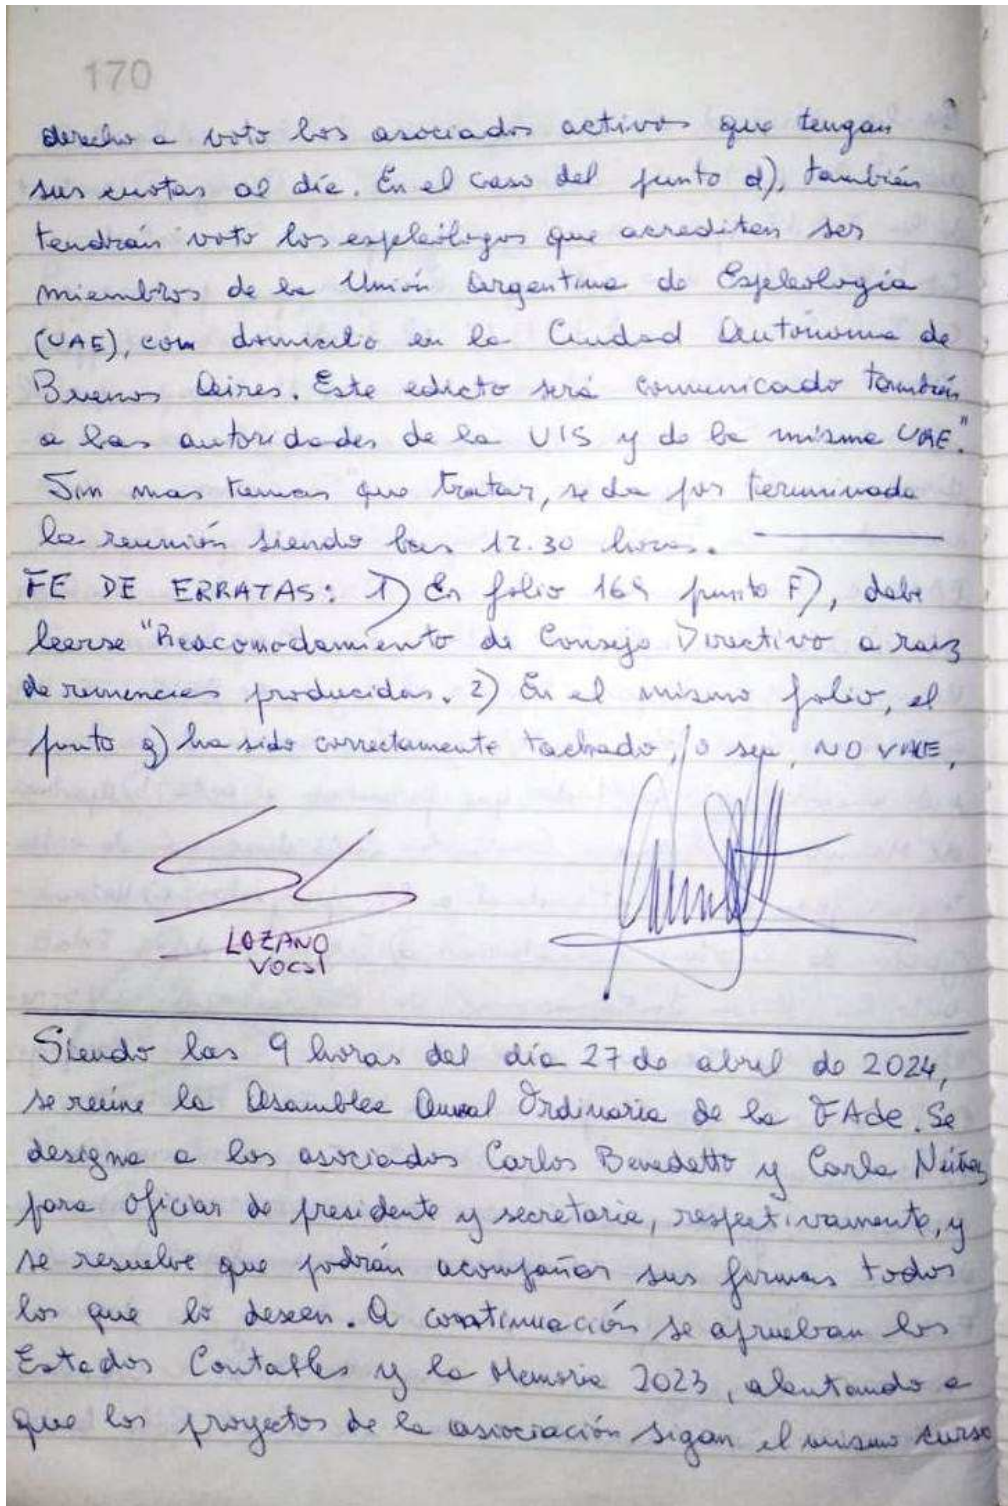 170
derecho a voto los asociados activos que tengan
sus cuotas al día. En el caso del punto d), también
tendrán voto los espeleólogos que acrediten ser
miembros de la Unión Argentina de Espeleología
(UAE), con domicilio en la Ciudad Autónoma de
Buenos Aires. Este edicto será comunicado también
a las autoridades de la UIS y de la misma UAE."
Sin mas temas que tratar, se da por terminada
la reunión siendo las 12.30 horas.
FE DE ERRATAS: 1) En folio 169 punto F), debe
leerse "Reacomodamiento de Consejo Directivo a raiz
de renuncias producidas. 2) En el mismo folio, el
punto g) ha sido correctamente tachado, o sea, NO VALE,
LOZANO
VOCAL
Siendo las 9 horas del día 27 de abril de 2024,
se reúne la Asamblea Anual Ordinaria de la FAdE. Se
designa a los asociados Carlos Benedetto y Carla
para oficiar de presidente y secretaria, respectivamente, y
se resuelve que podrán acompañar sus firmas todos
los que lo deseen. A continuación se aprueban los
Estados Contables y la Memoria 2023, alentando a
que los proyectos de la asociación sigan el mismo curso